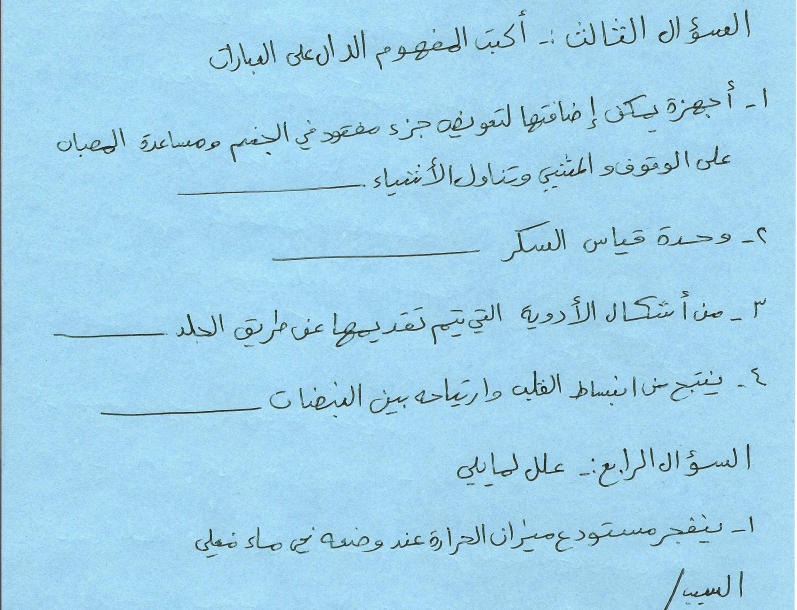 السؤال الثالث :- أكتب المفهوم الدال على العبارات
١- أجهزة يمكن إضافتها لتعويض جزء مفقود في الجسم ومساعدة المصاب
على الوقوف و المشي وتناول الأشياء ـــــــــــــ
٢- وحدة قياس السكر ـــــــــــــ
٣- من أشكال الأدوية التي يتم تقديمها عن طريق الجلد ـــــــــــــ
٤- ينتج من انبساط القلب وارتياحه بين النبضات ـــــــــــــ
السؤال الرابع :- علل لما يلي
١- ينفجر مستودع ميزان الحرارة عند وضعه في ماء مغلي
السبب/